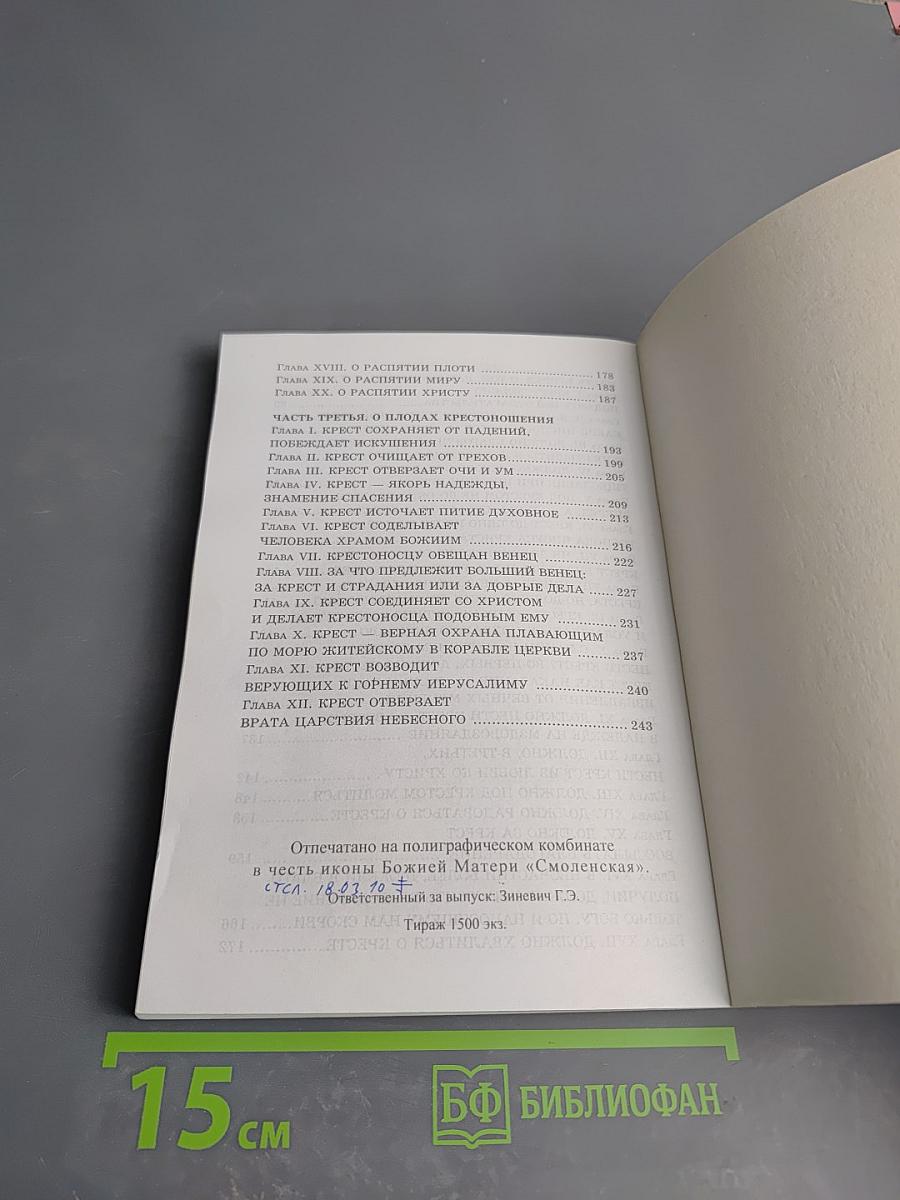 Глава XVIII. О РАСПЯТИИ ПЛОТИ ........ 178
Глава XIX. О РАСПЯТИИ МИРУ ........ 183
Глава XX. О РАСПЯТИИ ХРИСТУ ........ 187
ЧАСТЬ ТРЕТЬЯ. О ПЛОДАХ КРЕСТОНОШЕНИЯ
Глава I. КРЕСТ СОХРАНЯЕТ ОТ ПАДЕНИЙ,
ПОБЕЖДАЕТ ИСКУШЕНИЯ ........ 193
Глава II. КРЕСТ ОЧИЩАЕТ ОТ ГРЕХОВ ........ 199
Глава III. КРЕСТ ОТВЕРЗАЕТ ОЧИ И УМ ........ 205
Глава IV. КРЕСТ — ЯКОРЬ НАДЕЖДЫ,
ЗНАМЕНИЕ СПАСЕНИЯ ........ 209
Глава V. КРЕСТ ИСТОЧАЕТ ПИТИЕ ДУХОВНОЕ ........ 213
Глава VI. КРЕСТ СОДЕЛЫВАЕТ
ЧЕЛОВЕКА ХРАМОМ БОЖИИМ ........ 216
Глава VII. КРЕСТОНОСЦУ ОБЕЩАН ВЕНЕЦ ........ 222
Глава VIII. ЗА ЧТО ПРЕДЛЕЖИТ БОЛЬШИЙ ВЕНЕЦ:
ЗА КРЕСТ И СТРАДАНИЯ ИЛИ ЗА ДОБРЫЕ ДЕЛА ...... 227
Глава IX. КРЕСТ СОЕДИНЯЕТ СО ХРИСТОМ
И ДЕЛАЕТ КРЕСТОНОСЦА ПОДОБНЫМ ЕМУ ........ 231
Глава X. КРЕСТ — ВЕРНАЯ ОХРАНА ПЛАВАЮЩИМ
ПО МОРЮ ЖИТЕЙСКОМУ В КОРАБЛЕ ЦЕРКВИ ........ 237
Глава XI. КРЕСТ ВОЗВОДИТ
ВЕРУЮЩИХ К ГОРНЕМУ ИЕРУСАЛИМУ ........ 240
Глава XII. КРЕСТ ОТВЕРЗАЕТ
ВРАТА ЦАРСТВИЯ НЕБЕСНОГО ........ 243
Отпечатано на полиграфическом комбинате
в честь иконы Божией Матери «Смоленская».
СТСЛ. 18.03.10
Ответственный за выпуск: Зиневич Г.Э.
Тираж 1500 экз.
15 см
БФ БИБЛИОФАН